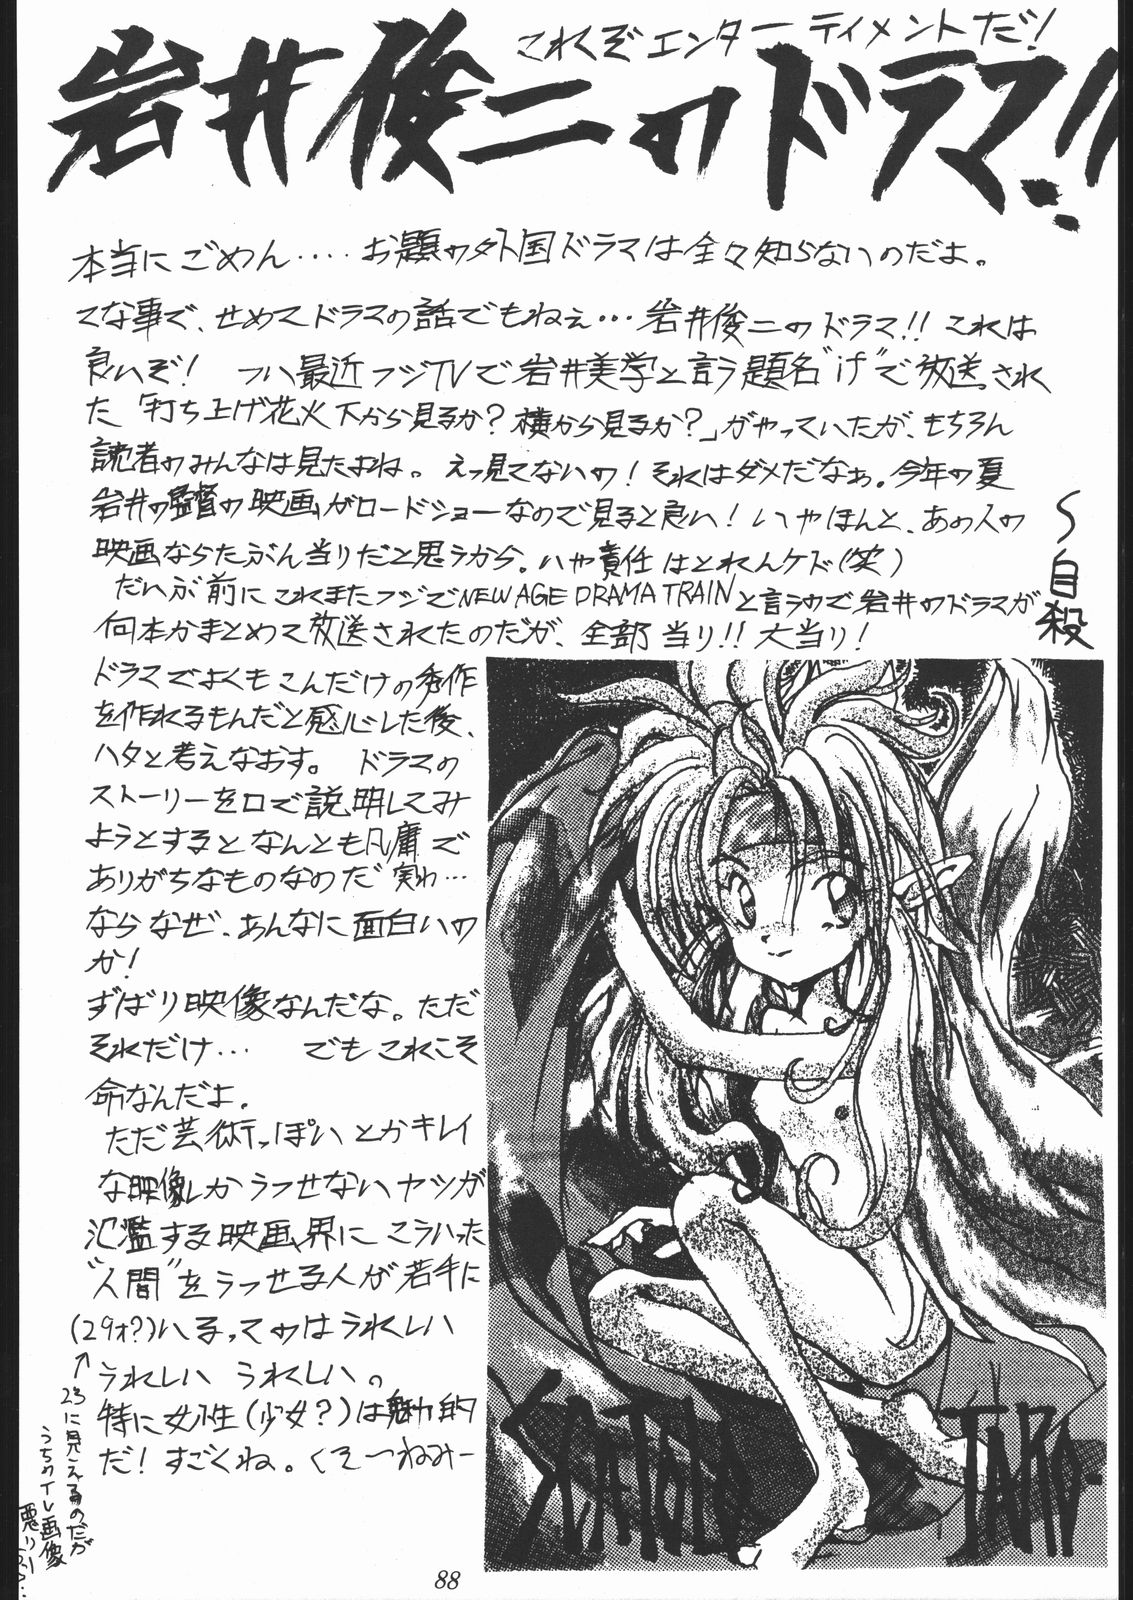 これぞエンターティメントだ!
岩井俊二のドラマ!!
本当にごめん....お題の外国ドラマは全々知らないのだよ。
てな事で、せめてドラマの話でもねぇ…岩井俊二のドラマ!! これは
良いぞ! つい最近フジTVで岩井美学と言う題名"げ"で放送された
た「打ち上げ花火下から見るか?横から見るか?」がやっていたが、もちろん
読者のみんなは見たよね。えっ見てないの!それはダメだなぁ。今年の夏
岩井の監督の映画がロードショーなので見ると良い!いやほんと、あの人の
映画ならたぶん当りだと思うから。いや責任はとれんケド(笑)
〜自殺
だいぶ前にこれまたフジでNEW AGE DRAMA TRAINと言うので岩井のドラマが
何本かまとめて放送されたのだが、全部当り!!大当り!
ドラマでよくもこんだけの秀作
を作れるもんだと感心した後、
ハタと考えなおす。 ドラマの
ストーリーを口で説明してみ
ようとするとなんとも凡庸で
ありがちなものなのだ実わ…
ならなぜ、あんなに面白いの
か!
ずばり映像なんだな。ただ
それだけ… でもこれこそ
命なんだよ。
ただ芸術っぽいとかキレイ
な映像しかうつせないヤツが
氾濫する映画界にこういった
"人間"をうつせる人が若手に
(29才?)いるってのはうれしい
うれしい うれしい。
特に女性(少女?)は魅力的
だ!すごくね。くそーつねみー
↑
23に見えるのだが
うちのTV画像
悪いし…
TARO
88